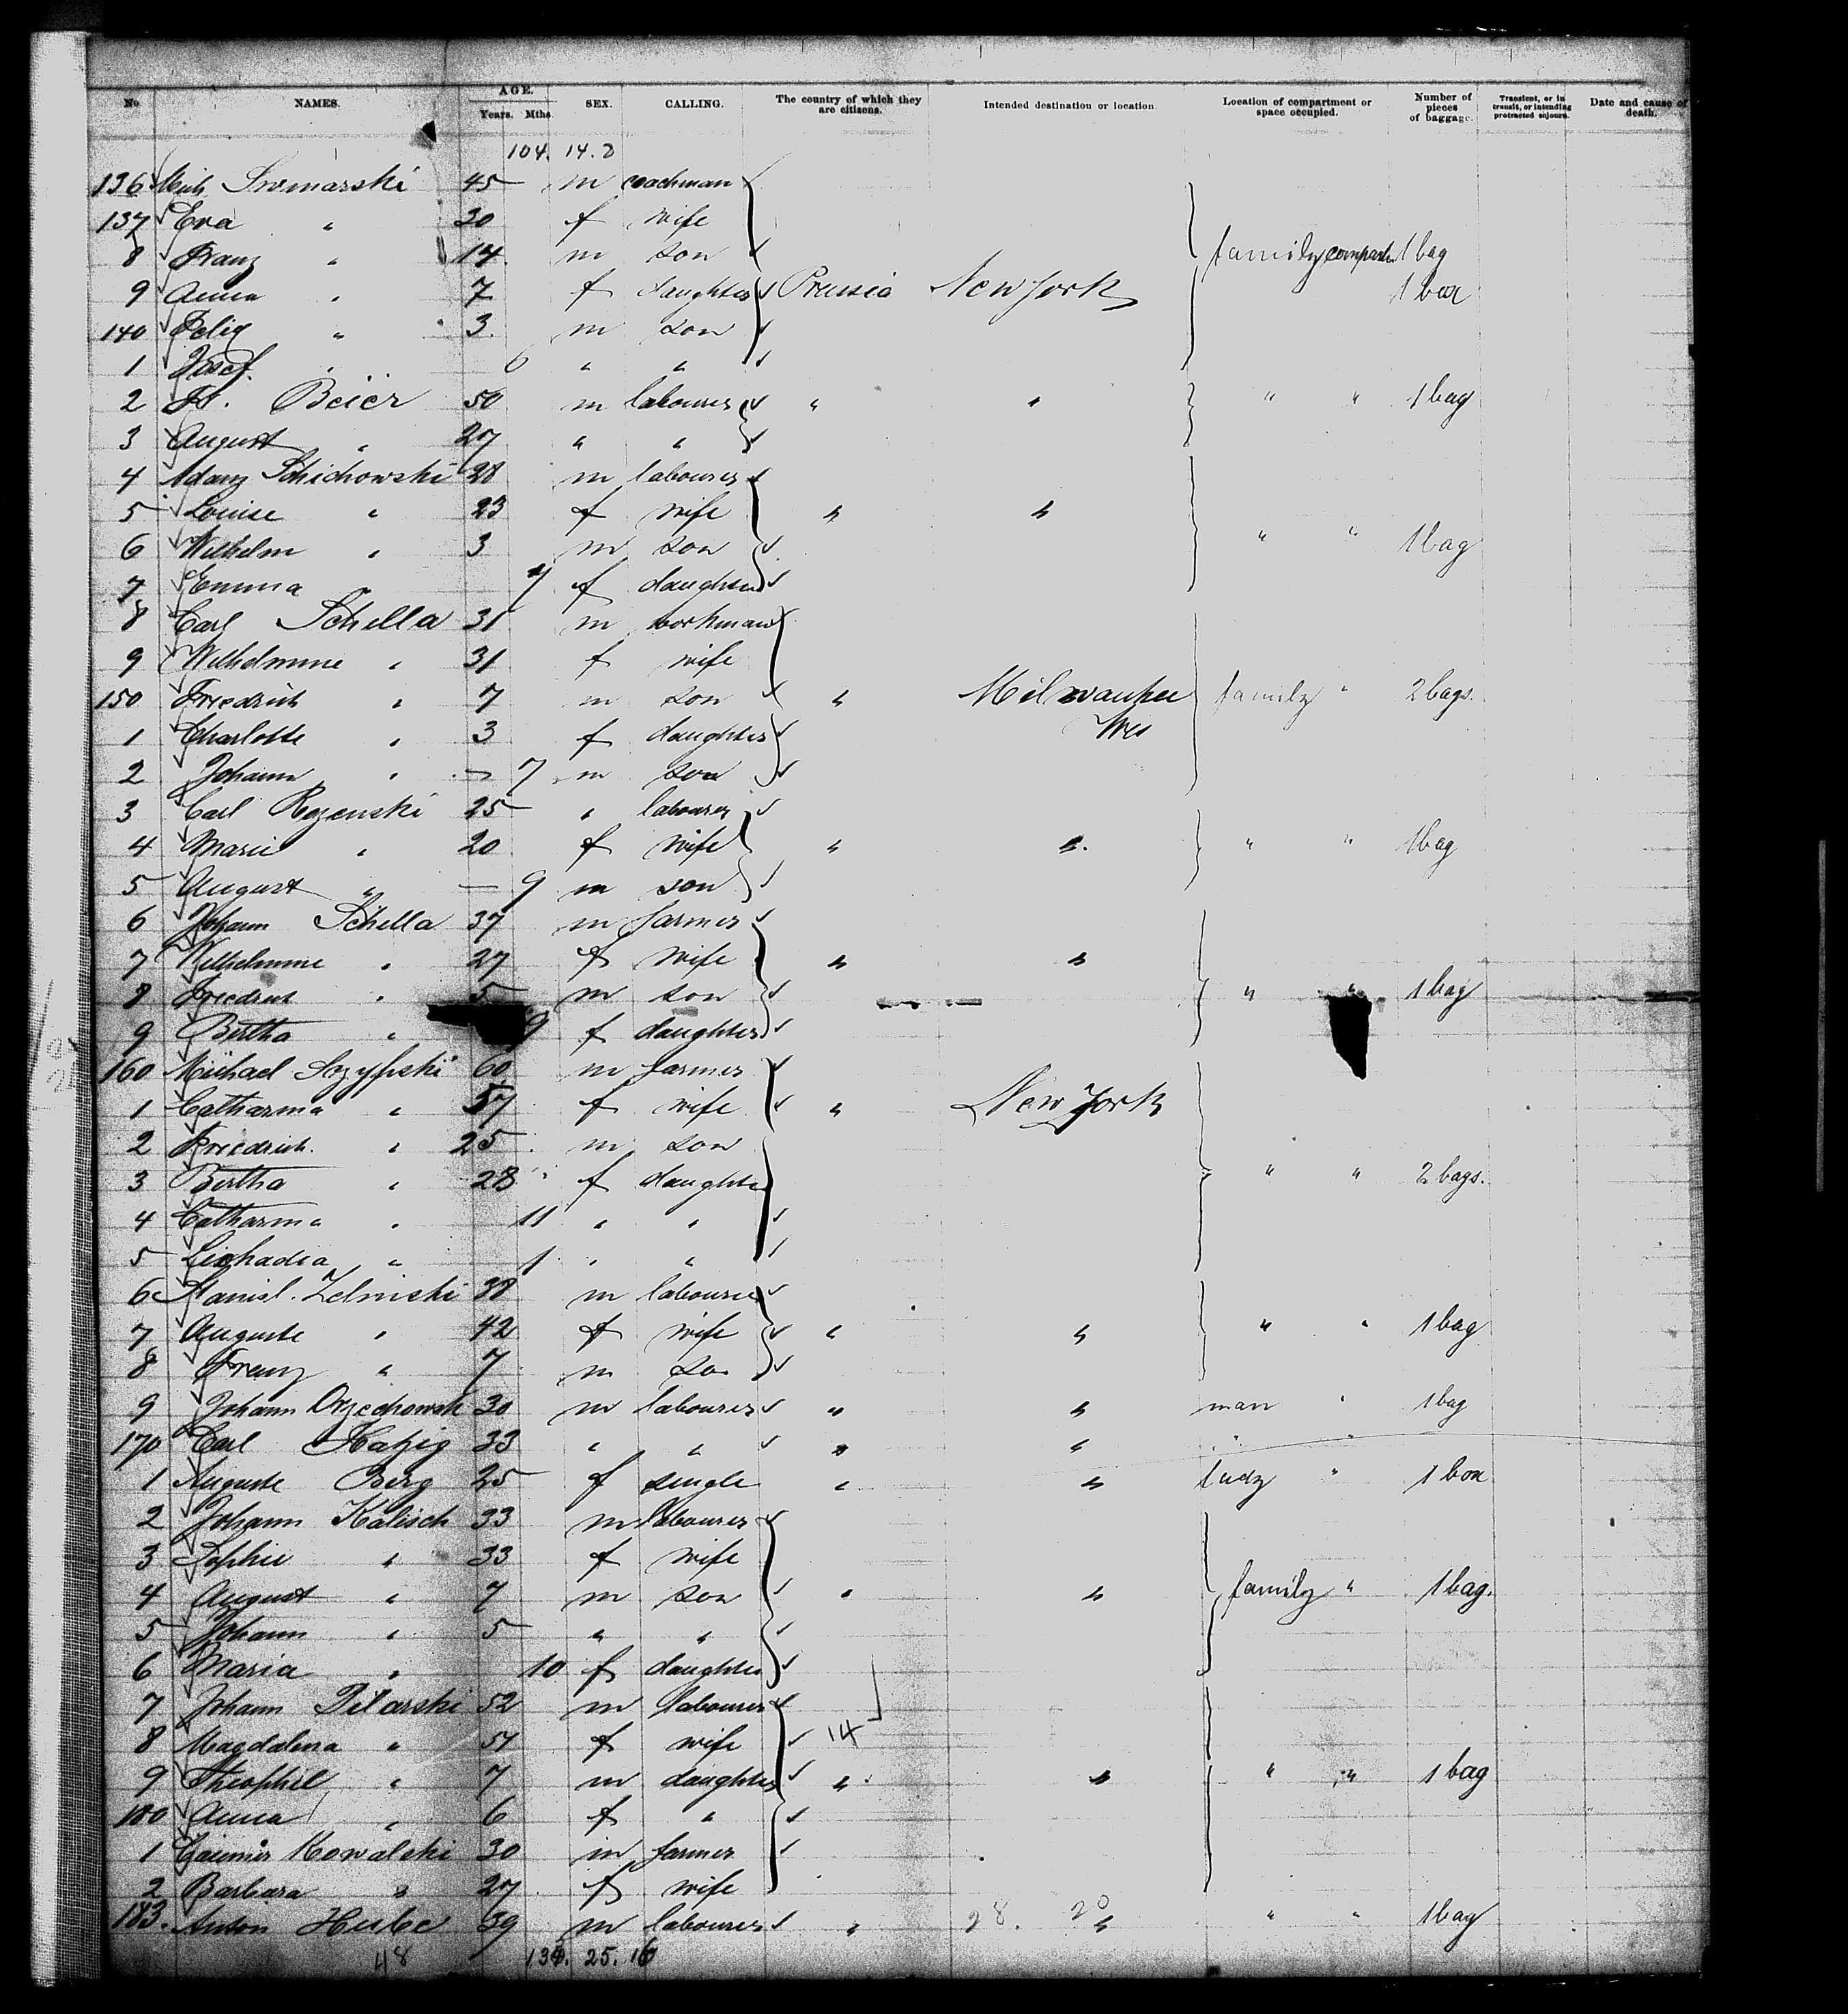 No. NAMES. AGE. Years. Mths. SEX. CALLING. The country of which they are citizens. Intended destination or location. Location of compartment or space occupied. Number of pieces of baggage. Transient, or in transit, or intending protracted sojourn. Date and cause of death.
104. 14. 2
136 Mich 45 m coachman
137 Eva " 30 f wife
8 Franz " 14 m son family 1 bag
9 Anna " 7 f daughter Prussia New York 1 box
140 Felix " 3 m son
1 Josef " 6 " "
2 Fr. Beier 50 m labourer " " " " 1 bag
3 August " 27 " "
4 Adam Schichowski 28 m labourer
5 Louise " 23 f wife " "
6 Wilhelm " 3 m son " " 1 bag
7 Emma f daughter
8 Carl Schella 31 m workman
9 Wilhelmine " 31 f wife
150 Friedrich " 7 m son " Milwaukee family " 2 bags.
1 Charlotte " 3 f daughter Wis
2 Johann " — 7 m son
3 Carl 25 " labourer
4 Marie " 20 f wife " " " " 1 bag
5 August " — 9 m son
6 Johann Schella 37 m farmer
7 Wilhelmine " 27 f wife " "
8 Friedrich " 5 m son " " 1 bag
9 Bertha " 9 f daughter
160 Michael 60 m farmer
1 Catharina " 57 f wife " New York
2 Friedrich " 25 m son
3 Bertha " 28 f daughter " " 2 bags.
4 Catharina " 11 " "
5 " 1 " "
6 Stanisl. Zelinski 38 m labourer
7 Auguste " 42 f wife " " " " 1 bag
8 Franz " 7 m son
9 Johann Orzechowski 30 m labourer " " man " 1 bag
170 Carl 33 " " " " " "
1 Auguste Berg 25 f single " " lady " 1 box
2 Johann Kalisch 33 m labourer
3 Sophie " 33 f wife
4 August " 7 m son " " family " 1 bag.
5 Johann " 5 " "
6 Maria " 10 f daughter
7 Johann Pilarski 52 m labourer
8 Magdalena " f wife 14
9 Theophil " 7 m daughter " " " " 1 bag
180 Anna " 6 f "
1 Kowalski 30 m farmer
2 Barbara " 27 f wife
183. Anton 39 m labourer " 28. 20 " " " 1 bag
48 25.